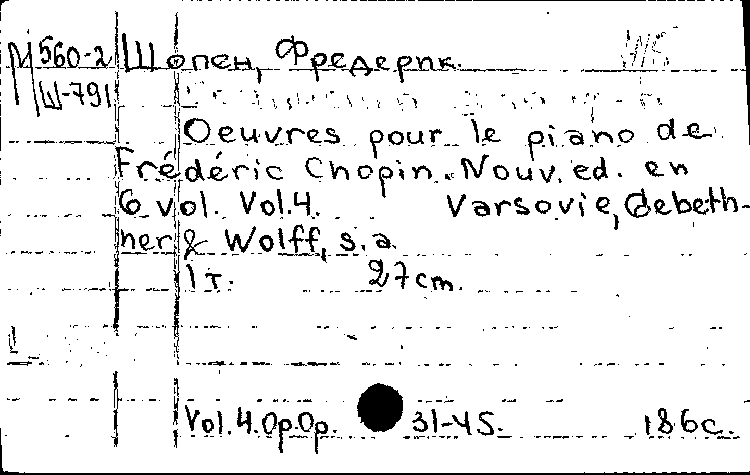 М 560-2 Шопен, Фредерик.
Ш-791
Oeuvres pour le piano de
Frédéric Chopin. Nouv. ed. en
6 vol. Vol.4. Varsovie, Gebeth-
ner & Wolff, s.a.
1 т. 27cm.
Vol.4.Op.Op. 31-45. 186c.